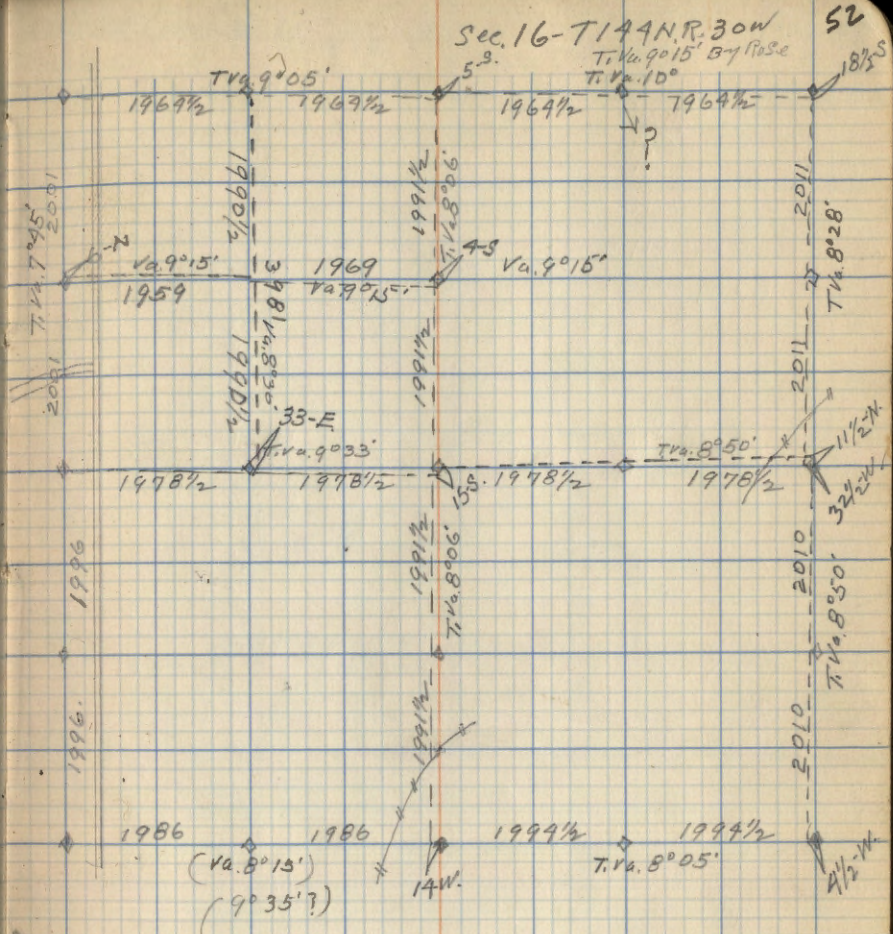 52
Sec. 16 - T144N. R. 30W
T. Va. 9°15' By Rose
T Va. 9°05'
5-S.
T. Va. 10°
18½-S
1964½ 1964½ 1964½ 1964½
?
2001
1990½
1991½
T. Va. 8°06'
2011
T. Va. 7°45'
T Va. 8°28'
Va. 9°15'
1969
4-S
Va. 9°15'
1959
Va. 9°15'
3981
Va. 8°30'
2001
1990½
1991½
2011
33-E
T. Va. 9°33'
T Va. 8°50'
11½-N.
1978½ 1978½
15S.
1978½ 1978½
32½-W
1996
1991½
T. Va. 8°06'
2010
T. Va. 8°50'
1996.
1991½
2010
1986 1986 1994½ 1994½
(Va. 8°15')
T. Va. 8°05'
14W.
4½-W.
(9°35'?)